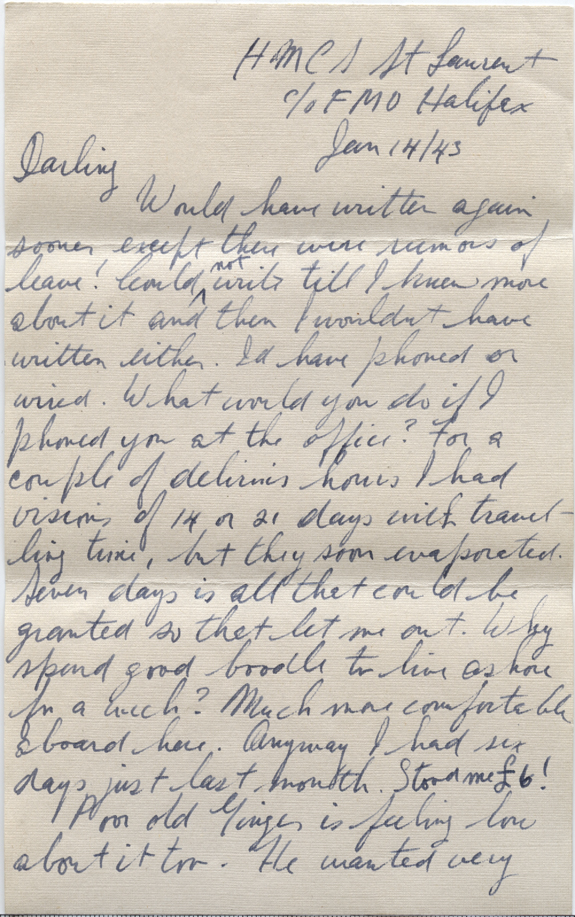 HMCS St Laurent
c/o FMO Halifax
Jan 14/43
Darling
Would have written again
sooner except there were rumors of
leave! Could not write till I knew more
about it and then I wouldnt have
written either. Id have phoned or
wired. What would you do if I
phoned you at the office? For a
couple of delirius hours I had
visions of 14 or 21 days with travel-
ling time, but they soon evaporated.
Seven days is all that could be
granted so that let me out. Why
spend good boodle to live ashore
for a week? Much more comfortable
aboard here. Anyway I had six
days just last month. Stood me £6!
Poor old Ginger is feeling low
about it too. He wanted very